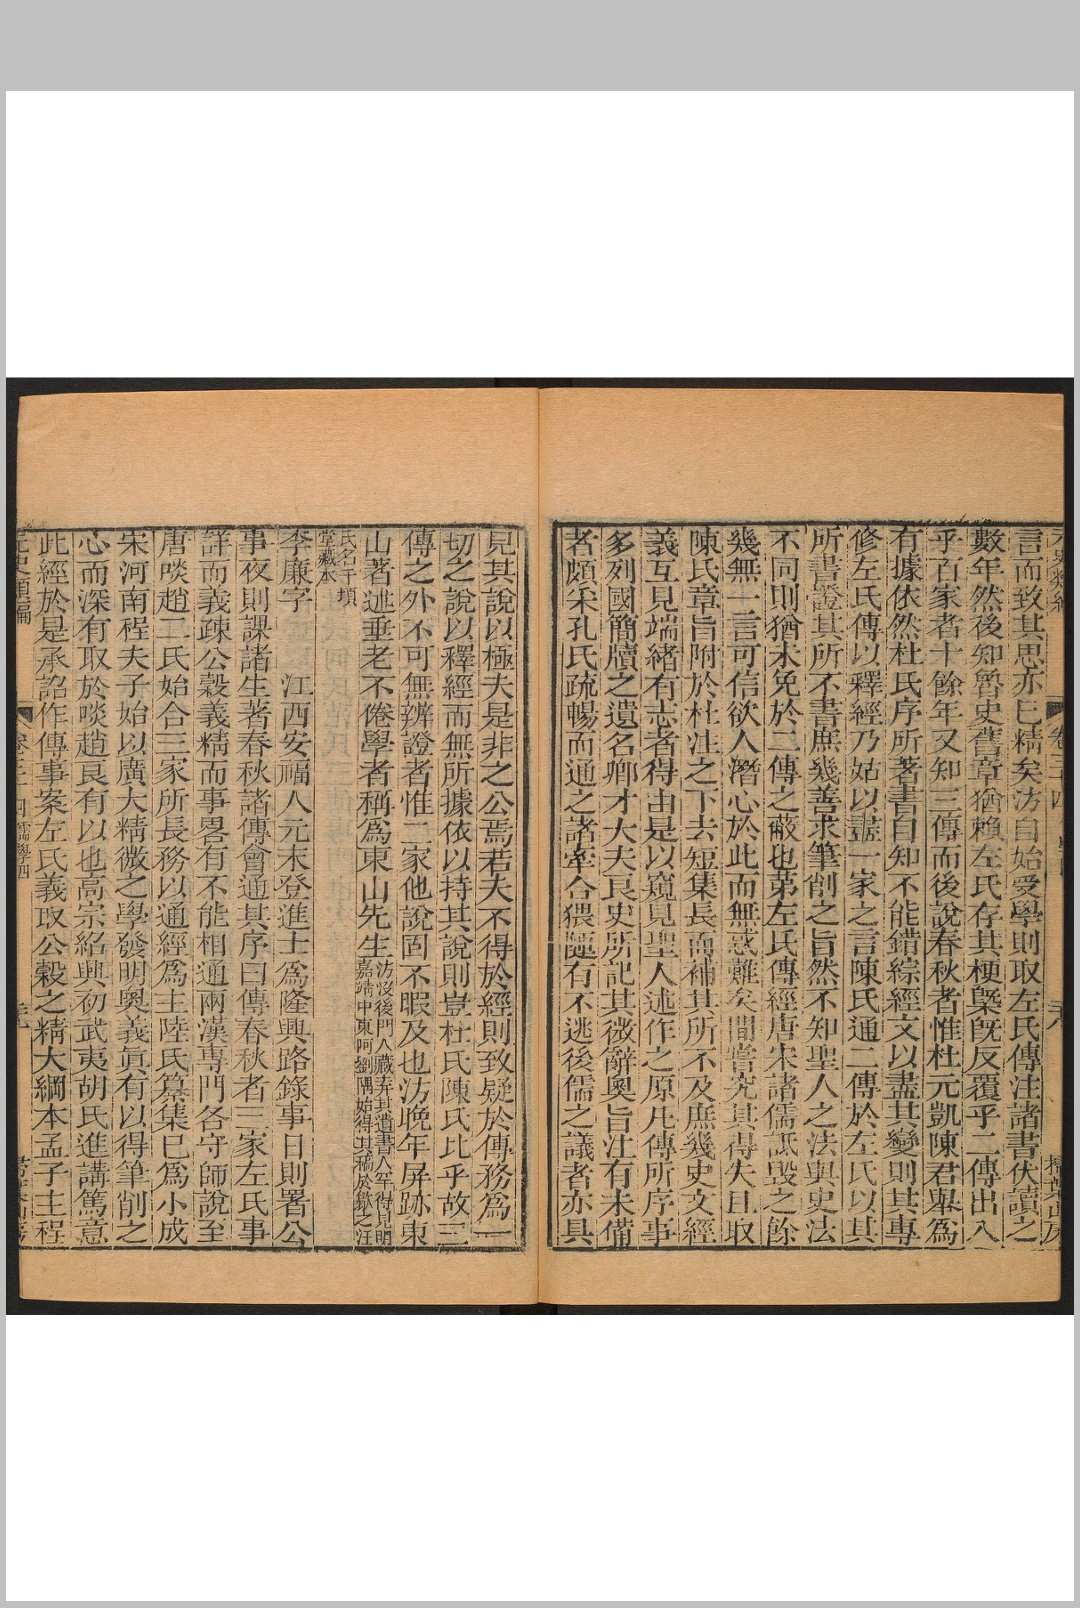 言而致其思亦已精矣汸自始受學則取左氏傳注諸書伏讀之
數年然後知魯史舊章猶賴左氏存其梗槩既反覆乎二傳出入
乎百家者十餘年又知三傳而後說春秋者惟杜元凱陳君舉爲
有據依然杜氏序所著書自知不能錯綜經文以盡其變則其專
修左氏傳以釋經乃姑以盡一家之言陳氏通二傳於左氏以其
所書證其所不書庶幾善求筆削之旨然不知聖人之法與史法
不同則猶未免於二傳之蔽也第左氏傳經唐宋諸儒詆毀之餘
幾無一言可信欲人潛心於此而無惑難矣間嘗究其得失且取
陳氏章旨附於杜注之下去短集長而補其所不及庶幾史文經
義互見端緒有志者得由是以窺見聖人述作之原凡傳所序事
多列國簡牘之遺名卿才大夫良史所記其微辭奧旨注有未備
者頗采孔氏疏暢而通之諸牽合猥陋有不逃後儒之議者亦具
見其說以極夫是非之公焉若夫不得於經則致疑於傳務爲一
切之說以釋經而無所據依以持其說則豈杜氏陳氏比乎故三
傳之外不可無辨證者惟二家他說固不暇及也汸晩年屏跡東
山著述垂老不倦學者稱爲東山先生汸沒後門人藏弆其遺書人罕得見明
嘉靖中東阿劉隅始得其稿於歙之汪
氏名千頃
堂藏本
李廉字 江西安福人元末登進士爲隆興路錄事日則署公
事夜則課諸生著春秋諸傳會通其序曰傳春秋者三家左氏事
詳而義疎公穀義精而事畧有不能相通兩漢專門各守師說至
唐啖趙二氏始合三家所長務以通經爲主陸氏纂集已爲小成
宋河南程夫子始以廣大精微之學發明奧義眞有以得筆削之
心而深有取於啖趙良有以也高宗紹興初武夷胡氏進講篤意
此經於是承詔作傳事案左氏義取公穀之精大綱本孟子主程
元史類編
卷三十四儒學四